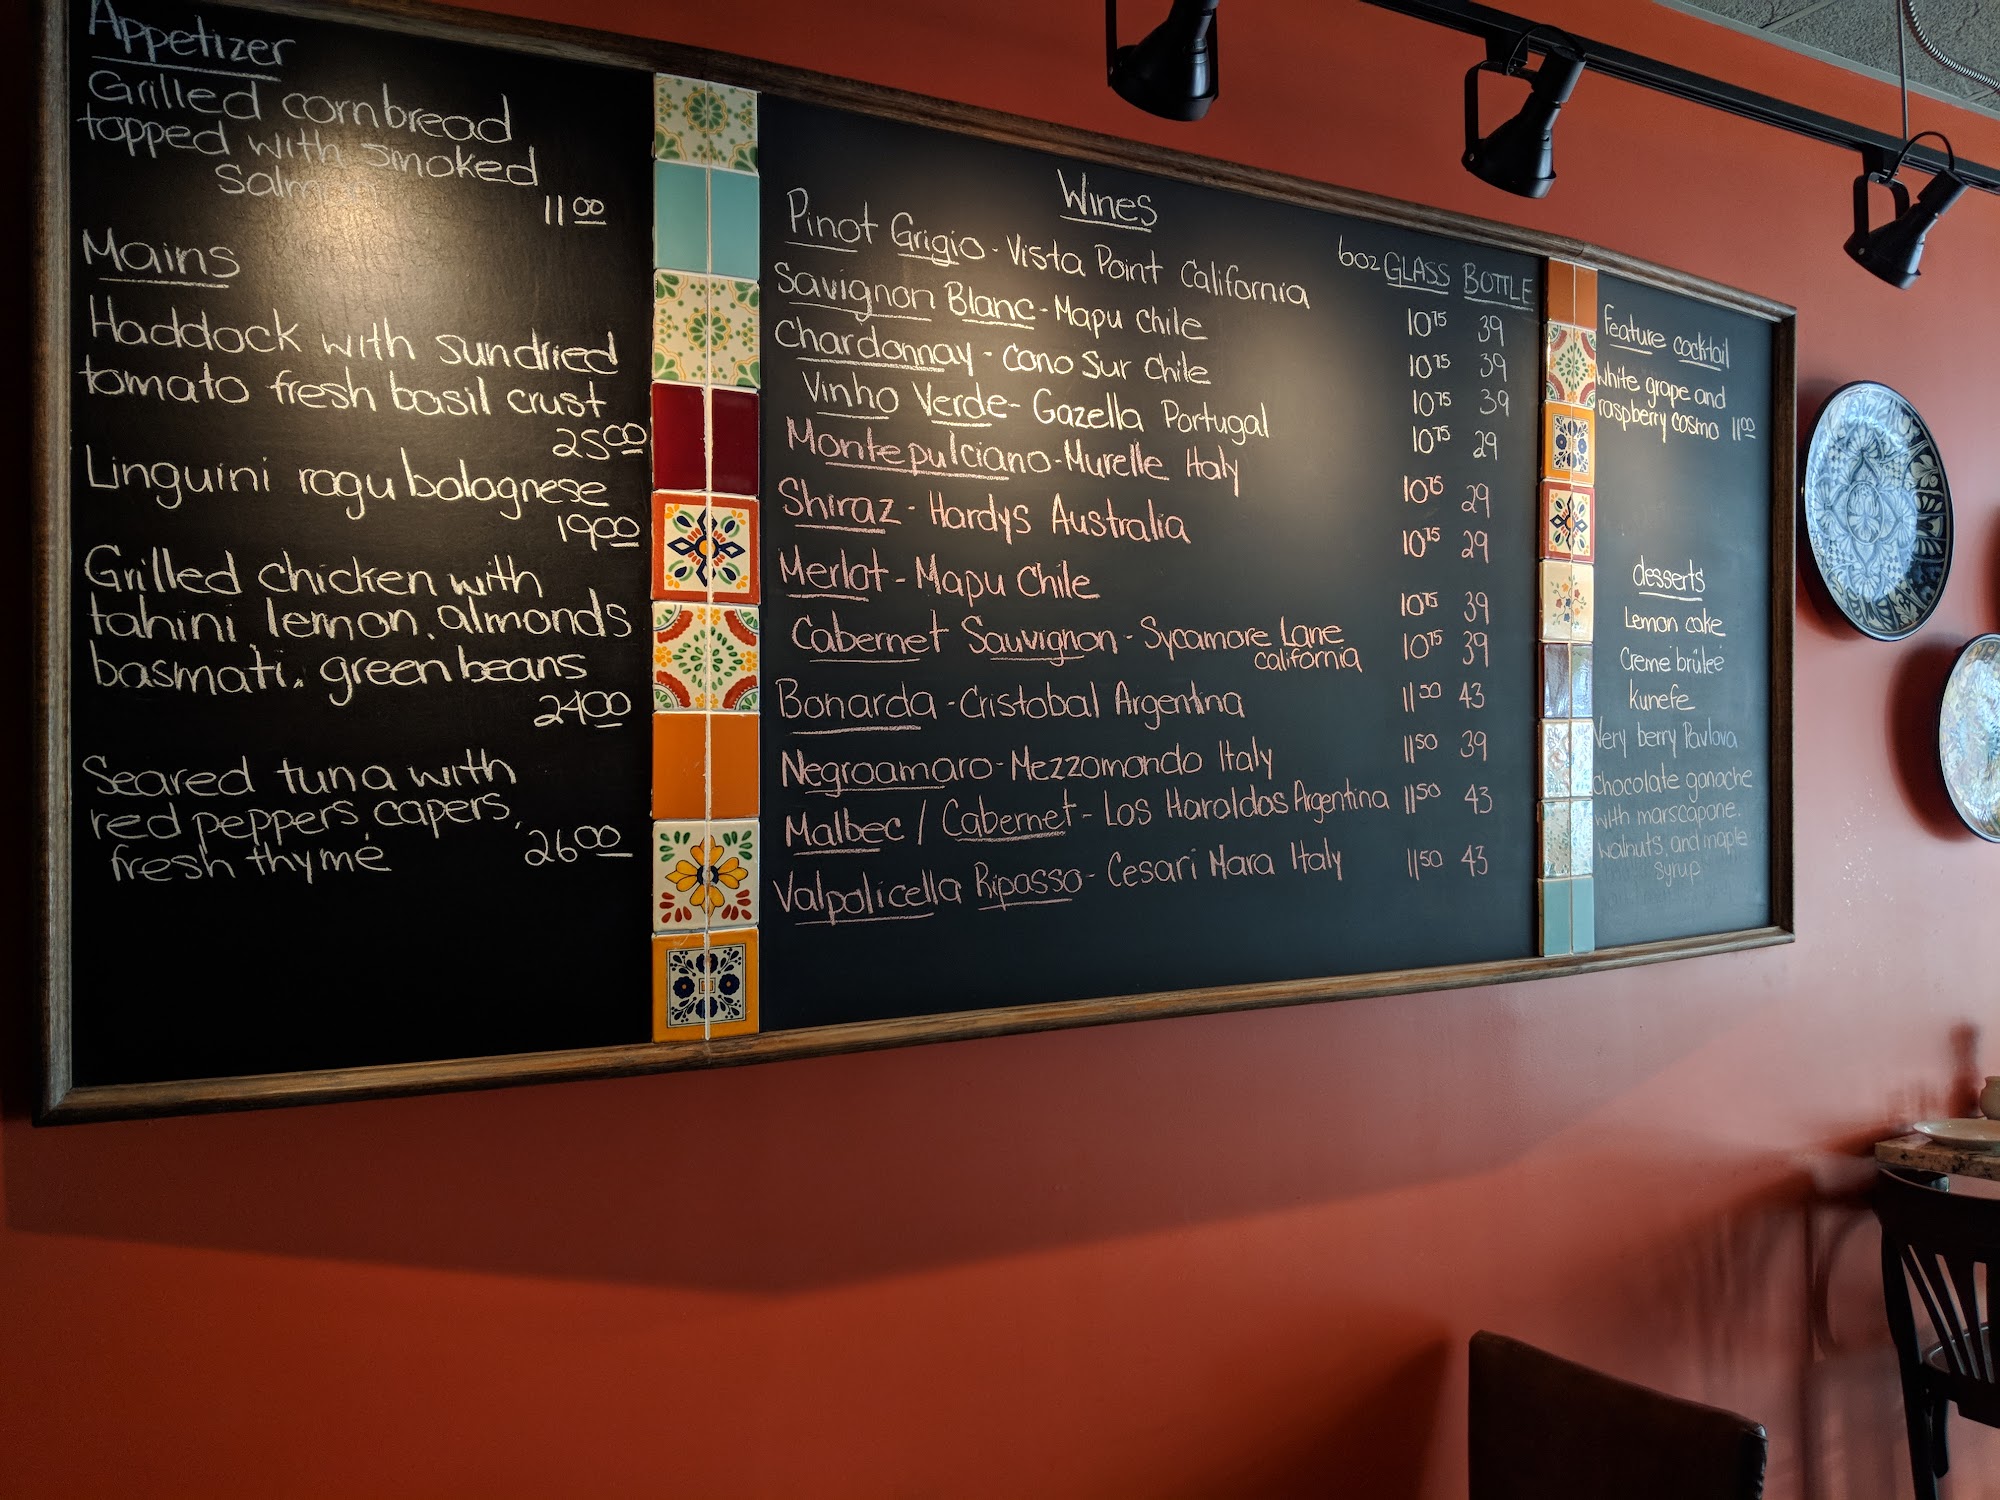 Appetizer
Grilled cornbread
topped with smoked
Salmon
11 00
Mains
Haddock with sundried
tomato fresh basil crust
25 00
Linguini ragu bolognese
19 00
Grilled chicken with
tahini, lemon, almonds
basmati, green beans
24 00
Seared tuna with
red peppers, capers,
fresh thyme
26 00
Wines
6oz GLASS BOTTLE
Pinot Grigio - Vista Point California 10 75 39
Savignon Blanc - Mapu Chile 10 75 39
Chardonnay - Cono Sur Chile 10 75 39
Vinho Verde - Gazella Portugal 10 75 29
Montepulciano - Murelle Italy 10 75 29
Shiraz - Hardys Australia 10 75 29
Merlot - Mapu Chile 10 75 39
Cabernet Sauvignon - Sycamore Lane 10 75 39
California
Bonarda - Cristobal Argentina 11 50 43
Negroamaro - Mezzomondo Italy 11 50 39
Malbec / Cabernet - Los Haroldos Argentina 11 50 43
Valpolicella Ripasso - Cesari Mara Italy 11 50 43
Feature cocktail
White grape and
raspberry cosmo 11 00
desserts
Lemon cake
Creme brûlée
Kunefe
Very berry Pavlova
Chocolate ganache
with marscapone.
walnuts, and maple
syrup